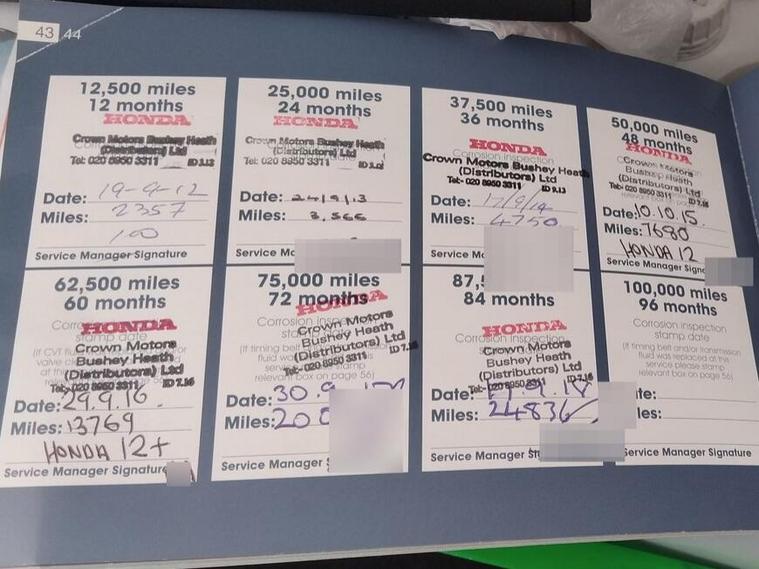 43 44
12,500 miles
12 months
HONDA
Crown Motors Bushey Heath
(Distributors) Ltd
Tel: 020 8950 3311
Date: 19-9-12
Miles: 2357
100
Service Manager Signature
25,000 miles
24 months
HONDA
Crown Motors Bushey Heath
(Distributors) Ltd
Tel: 020 8950 3311
Date: 24/9/13
Miles: 3,566
37,500 miles
36 months
HONDA
Corrosion inspection
Crown Motors Bushey Heath
(Distributors) Ltd
Tel: 020 8950 3311 ID 9.13
Date: 17/9/14
Miles: 4750
50,000 miles
48 months
HONDA
Crown Motors
Bushey Heath
(Distributors) Ltd
Tel: 020 8950 3311 ID 7.16
Date: 10.10.15.
Miles: 7680
HONDA 12
Service Manager
62,500 miles
60 months
HONDA
Crown Motors
Bushey Heath
(Distributors) Ltd
Tel: 020 8950 3311 ID 7.16
Date: 29.9.16.
Miles: 13769
HONDA 12+
Service Manager Signature
75,000 miles
72 months
HONDA
Corrosion inspection
Crown Motors
Bushey Heath
(Distributors) Ltd
Tel: 020 8950 3311 ID 7.16
relevant box on page 56)
Date: 30.9
Miles:
Service Manager
84 months
HONDA
Corrosion inspection
Crown Motors
Bushey Heath
(Distributors) Ltd
Tel: 020 8950 3311 ID 7.16
Date:
Miles: 24836
Service Manager
100,000 miles
96 months
Corrosion inspection
stamp date
(If timing belt and/or transmission
fluid was replaced at this
service please stamp
relevant box on page 56)
Service Manager Signature